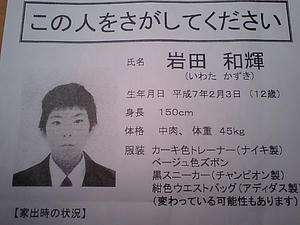 この人をさがしてください
氏名 岩田 和輝
(いわた かずき)
生年月日 平成7年2月3日 (12歳)
身長 150cm
体格 中肉、体重 45kg
服装 カーキ色トレーナー(ナイキ製)
ベージュ色ズボン
黒スニーカー(チャンピオン製)
紺色ウエストバッグ(アディダス製)
(変わっている可能性もあります)
【家出時の状況】